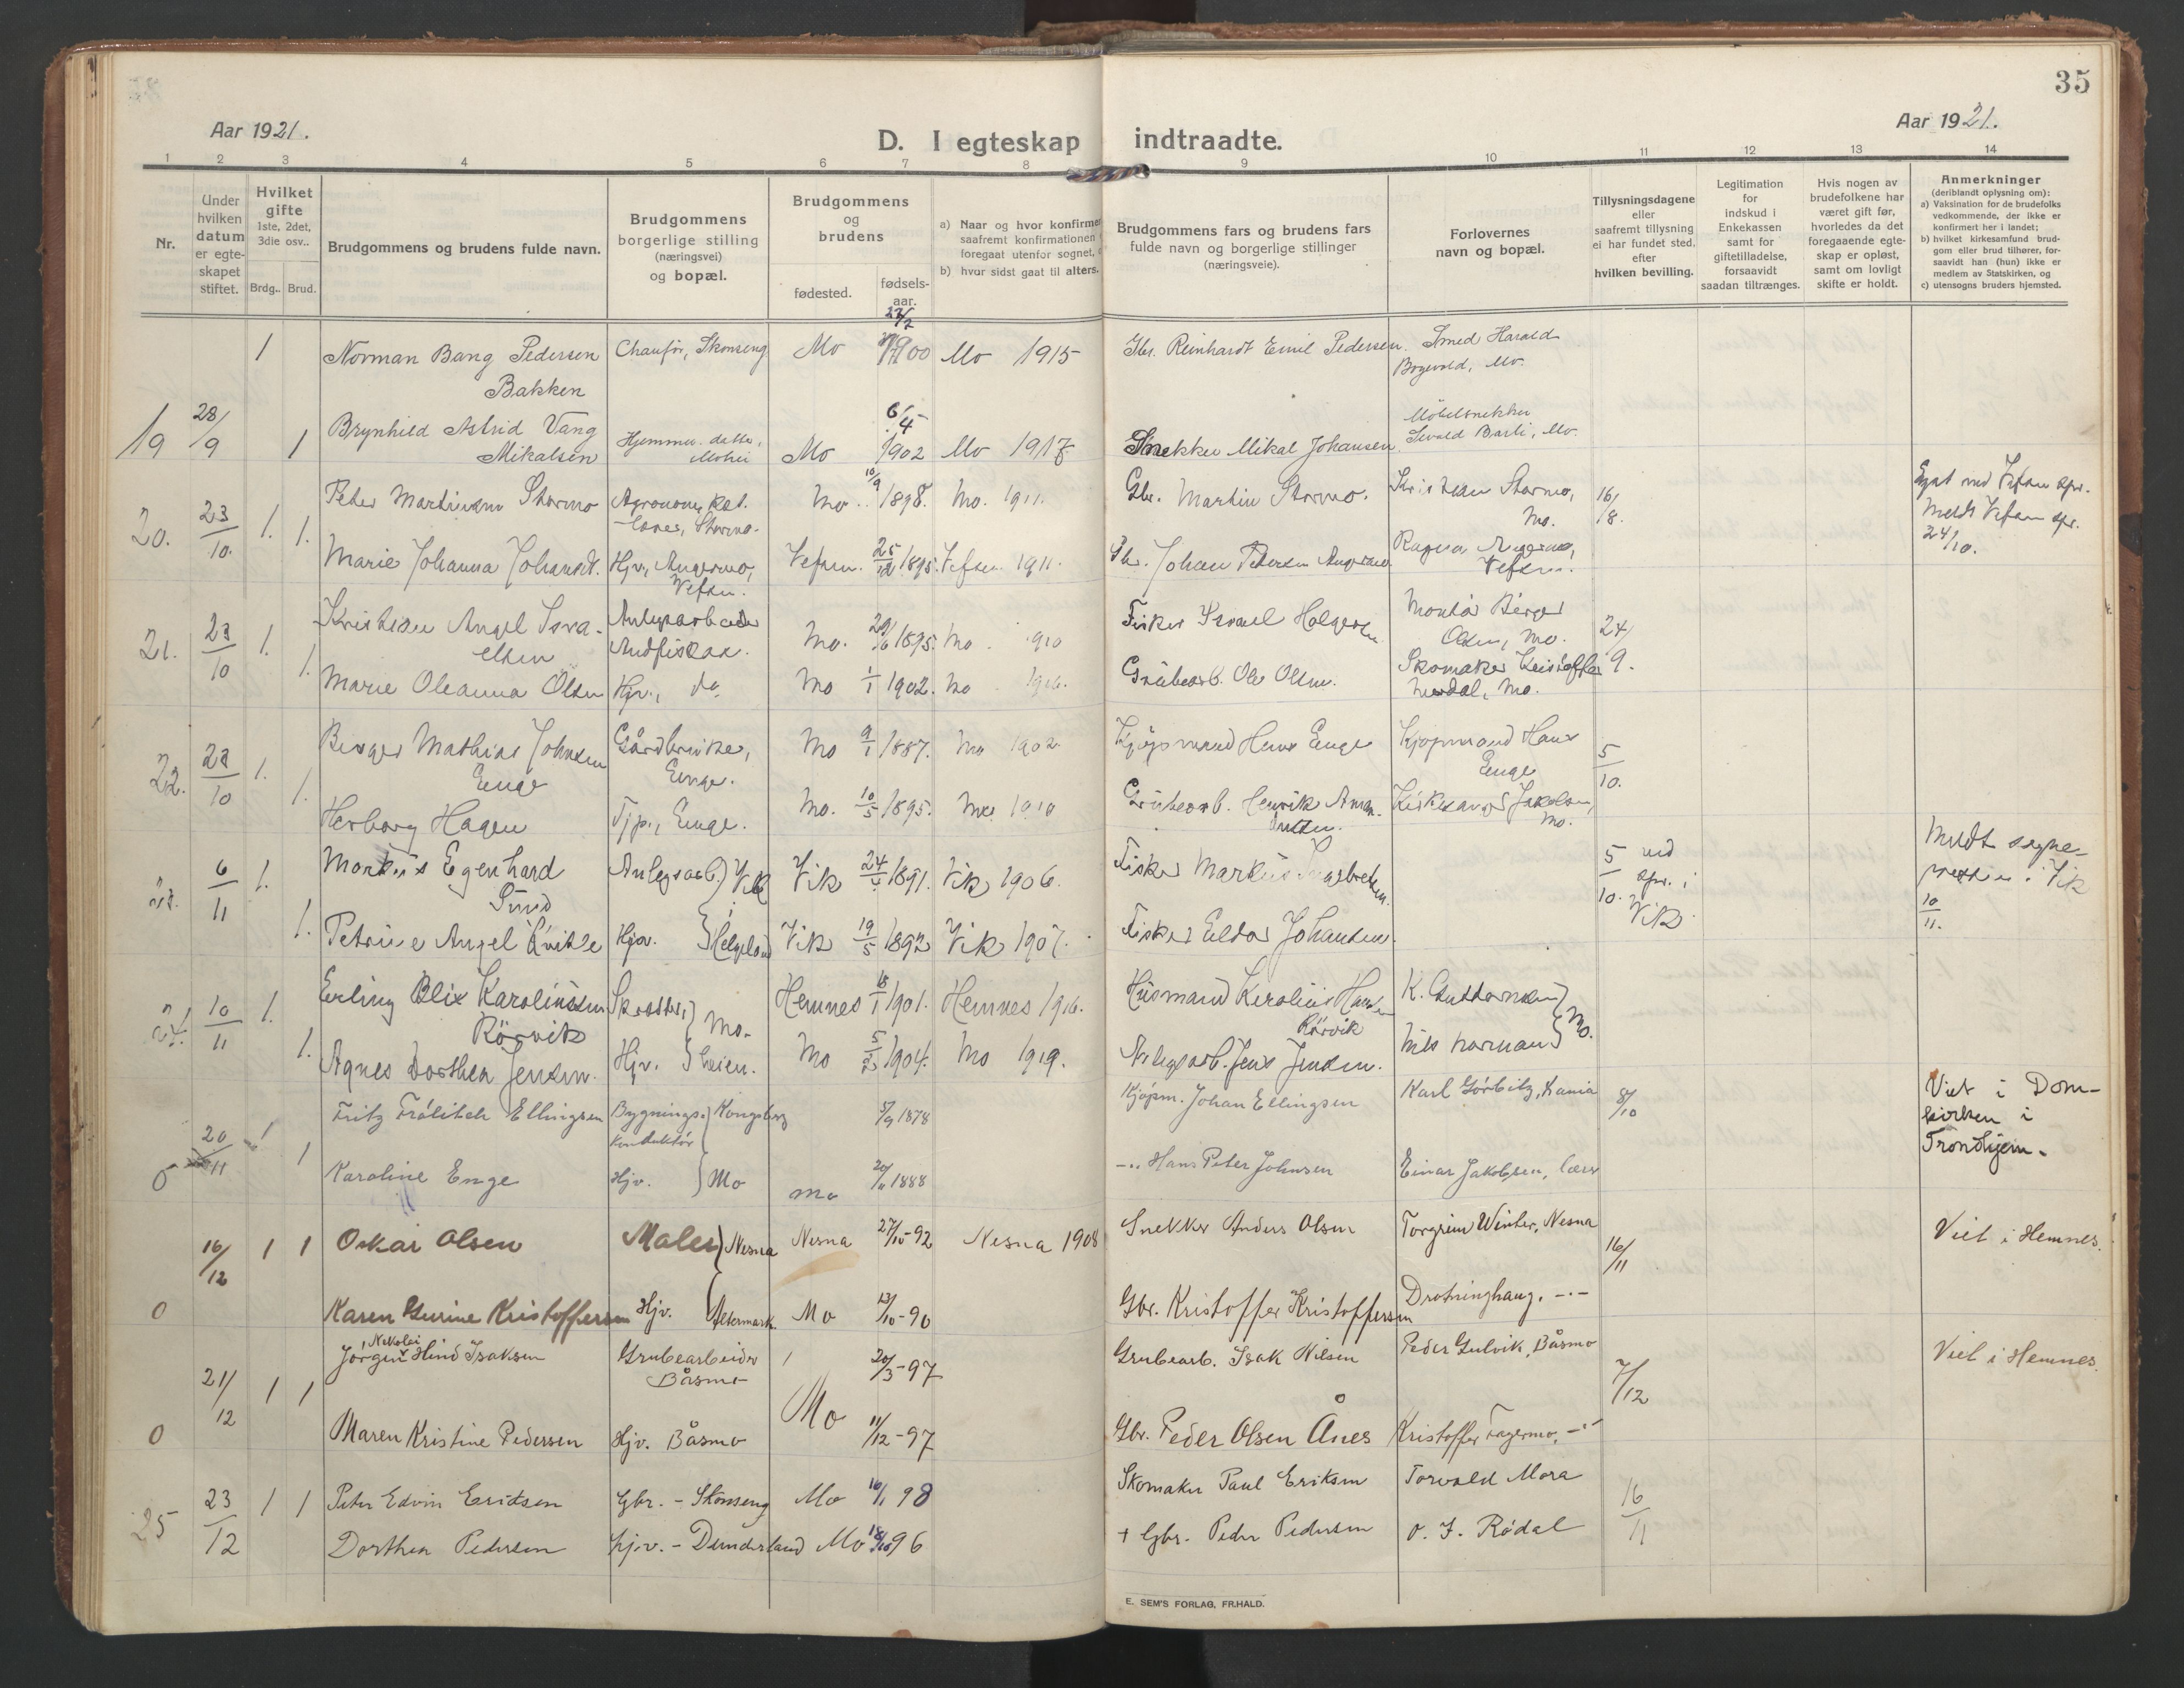 35
Aar 1921.
Aar 1921.
D. I egteskap indtraadte.
1 2 3 4 5 6 7 8 9 10 11 12 13 14
Nr.
Under hvilken datum er egte-skapet stiftet.
Hvilket gifte 1ste, 2det, 3die osv..
Brdg.. Brud.
Brudgommens og brudens fulde navn.
Brudgommens borgerlige stilling (næringsvei) og bopæl.
Brudgommens og brudens
fødested. fødsels-aar.
a) Naar og hvor konfirmer
saafremt konfirmationen
foregaat utenfor sognet,
b) hvor sidst gaat til alters.
Brudgommens fars og brudens fars
fulde navn og borgerlige stillinger
(næringsveie).
Forlovernes
navn og bopæl.
Tillysningsdagene
eller
saafremt tillysning
ei har fundet sted,
efter
hvilken bevilling.
Legitimation
for
indskud i
Enkekassen
samt for
giftetilladelse,
forsaavidt
saadan tiltrænges.
Hvis nogen av
brudefolkene har
været gift før,
hvorledes da det
foregaaende egte-
skap er opløst,
samt om lovligt
skifte er holdt.
Anmerkninger
(deriblandt oplysning om):
a) Vaksination for de brudefolks
vedkommende, der ikke er
konfirmert her i landet;
b) hvilket kirkesamfund brud-
gom eller brud tilhører, for-
saavidt han (hun) ikke er
medlem av Statskirken, og
c) utensogns bruders hjemsted.
1 Norman Bang Pedersen Chaufør, Skonseng Mo 27/2 1900 Mo 1915 Gbr. Reinhardt Emil Pedersen. Smed Harald
Bakken Mo.
19 28/9 1 Brynhild Astrid Vang Hjemmev. datter, Mo 6/4 1902 Mo 1917 Snekker Mikal Johansen Møbelsnekker
Mikalsen Barli, Mo.
20. 23/10. 1. 1. Peter Martinsen Stormo Agronom, Stormo. Mo. 10/9 1898. Mo. 1911. Gbr. Martin Stormo. Kristian Stormo, Mo. 16/8.
24/10.
Marie Johanna Johansdt. Hjv, Angermo, Vefsn. Vefsn. 25/12 1895. Vefsn. 1911. Gbr. Johan Petersen Ragna Angermo, Vefsn.
21. 23/10 1. 1. Kristian Angel Isra-
elsen Anlegsarbeider Andfiskaa. Mo. 29/6 1895. Mo. 1910 Fisker Israel Holgersen Montør Birger Olsen, Mo. 24/9.
Marie Oleanna Olsen Hjv., do. Mo 1/1 1902. Mo 1916. Grubearb. Ole Olsen. Skomaker Kristoffer Mo.
22. 23/10 1. 1. Birger Mathias Johnsen
Enge Gårdbruker, Enge. Mo 9/1 1887. Mo 1902 Kjøpmand Hans Enge Kjøpmand Hans Enge 5/10.
Herborg Hagen Tjp., Enge. Mo. 10/5 1895. Mo 1910 Grubearb. Henrik Aman- Kirkesanger Jakobsen, Mo.
6/11 1. 1. Markus Egenhard
Sund Anlegsarb. Vik i Helgeland Vik 24/ 1891. Vik 1906. Fisker Markus Ingebretsen. 5/10. ved spr. i Vik Meldt sogne-
presten i Vik 10/11.
Petrine Angel Hjv. Vik 19/5 1892 Vik 1907. Fisker Eldor Johansen.
24. 10/11 1. 1. Erling Blix Karoliussen
Rørvik Skrædder, Mo. Hemnes 18/1 1901. Hemnes 1916. Husmand Karolius Hansen Rørvik K. Guttormsen Mo.
Agnes Dorthea Jensen. Hjv. Mo 5/2 1904. Mo 1919. Anlegsarb. Jens Jensen. Nils Norman
0 20/11 1 1 Fritz Frölich Ellingsen Bygnings-konduktør Kongsberg 5/9 1878 Kjøpm. Johan Ellingsen Karl Görbitz, Rania 8/10 Viet i Dom-
kirken i
Trondhjem.
Karoline Enge Hjv. Mo Mo 20/11 1888 -"- Hans Peter Johnsen Einar Jakobsen, lærer
16/12 1 1 Oskar Olsen Maler Nesna Nesna 27/10-92 Nesna 1908 Snekker Anders Olsen Torgrim Winter, Nesna 16/11 Viet i Hemnes.
0 Karen Gurine Kristoffersen Hjv. Altermark. Mo 13/10-90 Gbr. Kristoffer Kristoffersen Drotninghaug, -"-
21/12 1 1 Jørgen Nikolai Hind Isaksen Grubearbeider Båsmo 20/3-97 Grubearb. Isak Nilsen Peder Gulvik, Båsmo 7/12 Viet i Hemnes.
0 Maren Kristine Pedersen Hjv. Båsmo Mo 11/12-97 Gbr. Peder Olsen Ånes Kristoffer Fagermo, -"-
25 23/12 1 1 Peter Edvin Eriksen Gbr. - Skonseng Mo 16/1 98 Skomaker Paul Eriksen Torvald Mora 16/11
Dorthea Pedersen Hjv. - Dunderland Mo 18/10 96 + Gbr. Peder Pedersen O. J. Rødal
E. SEM'S FORLAG, FR.HALD.